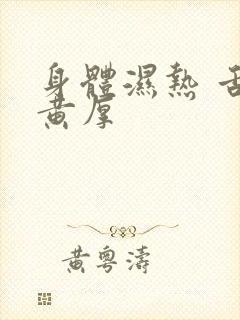 身體濕熱 舌
黃厚
黃粵濤